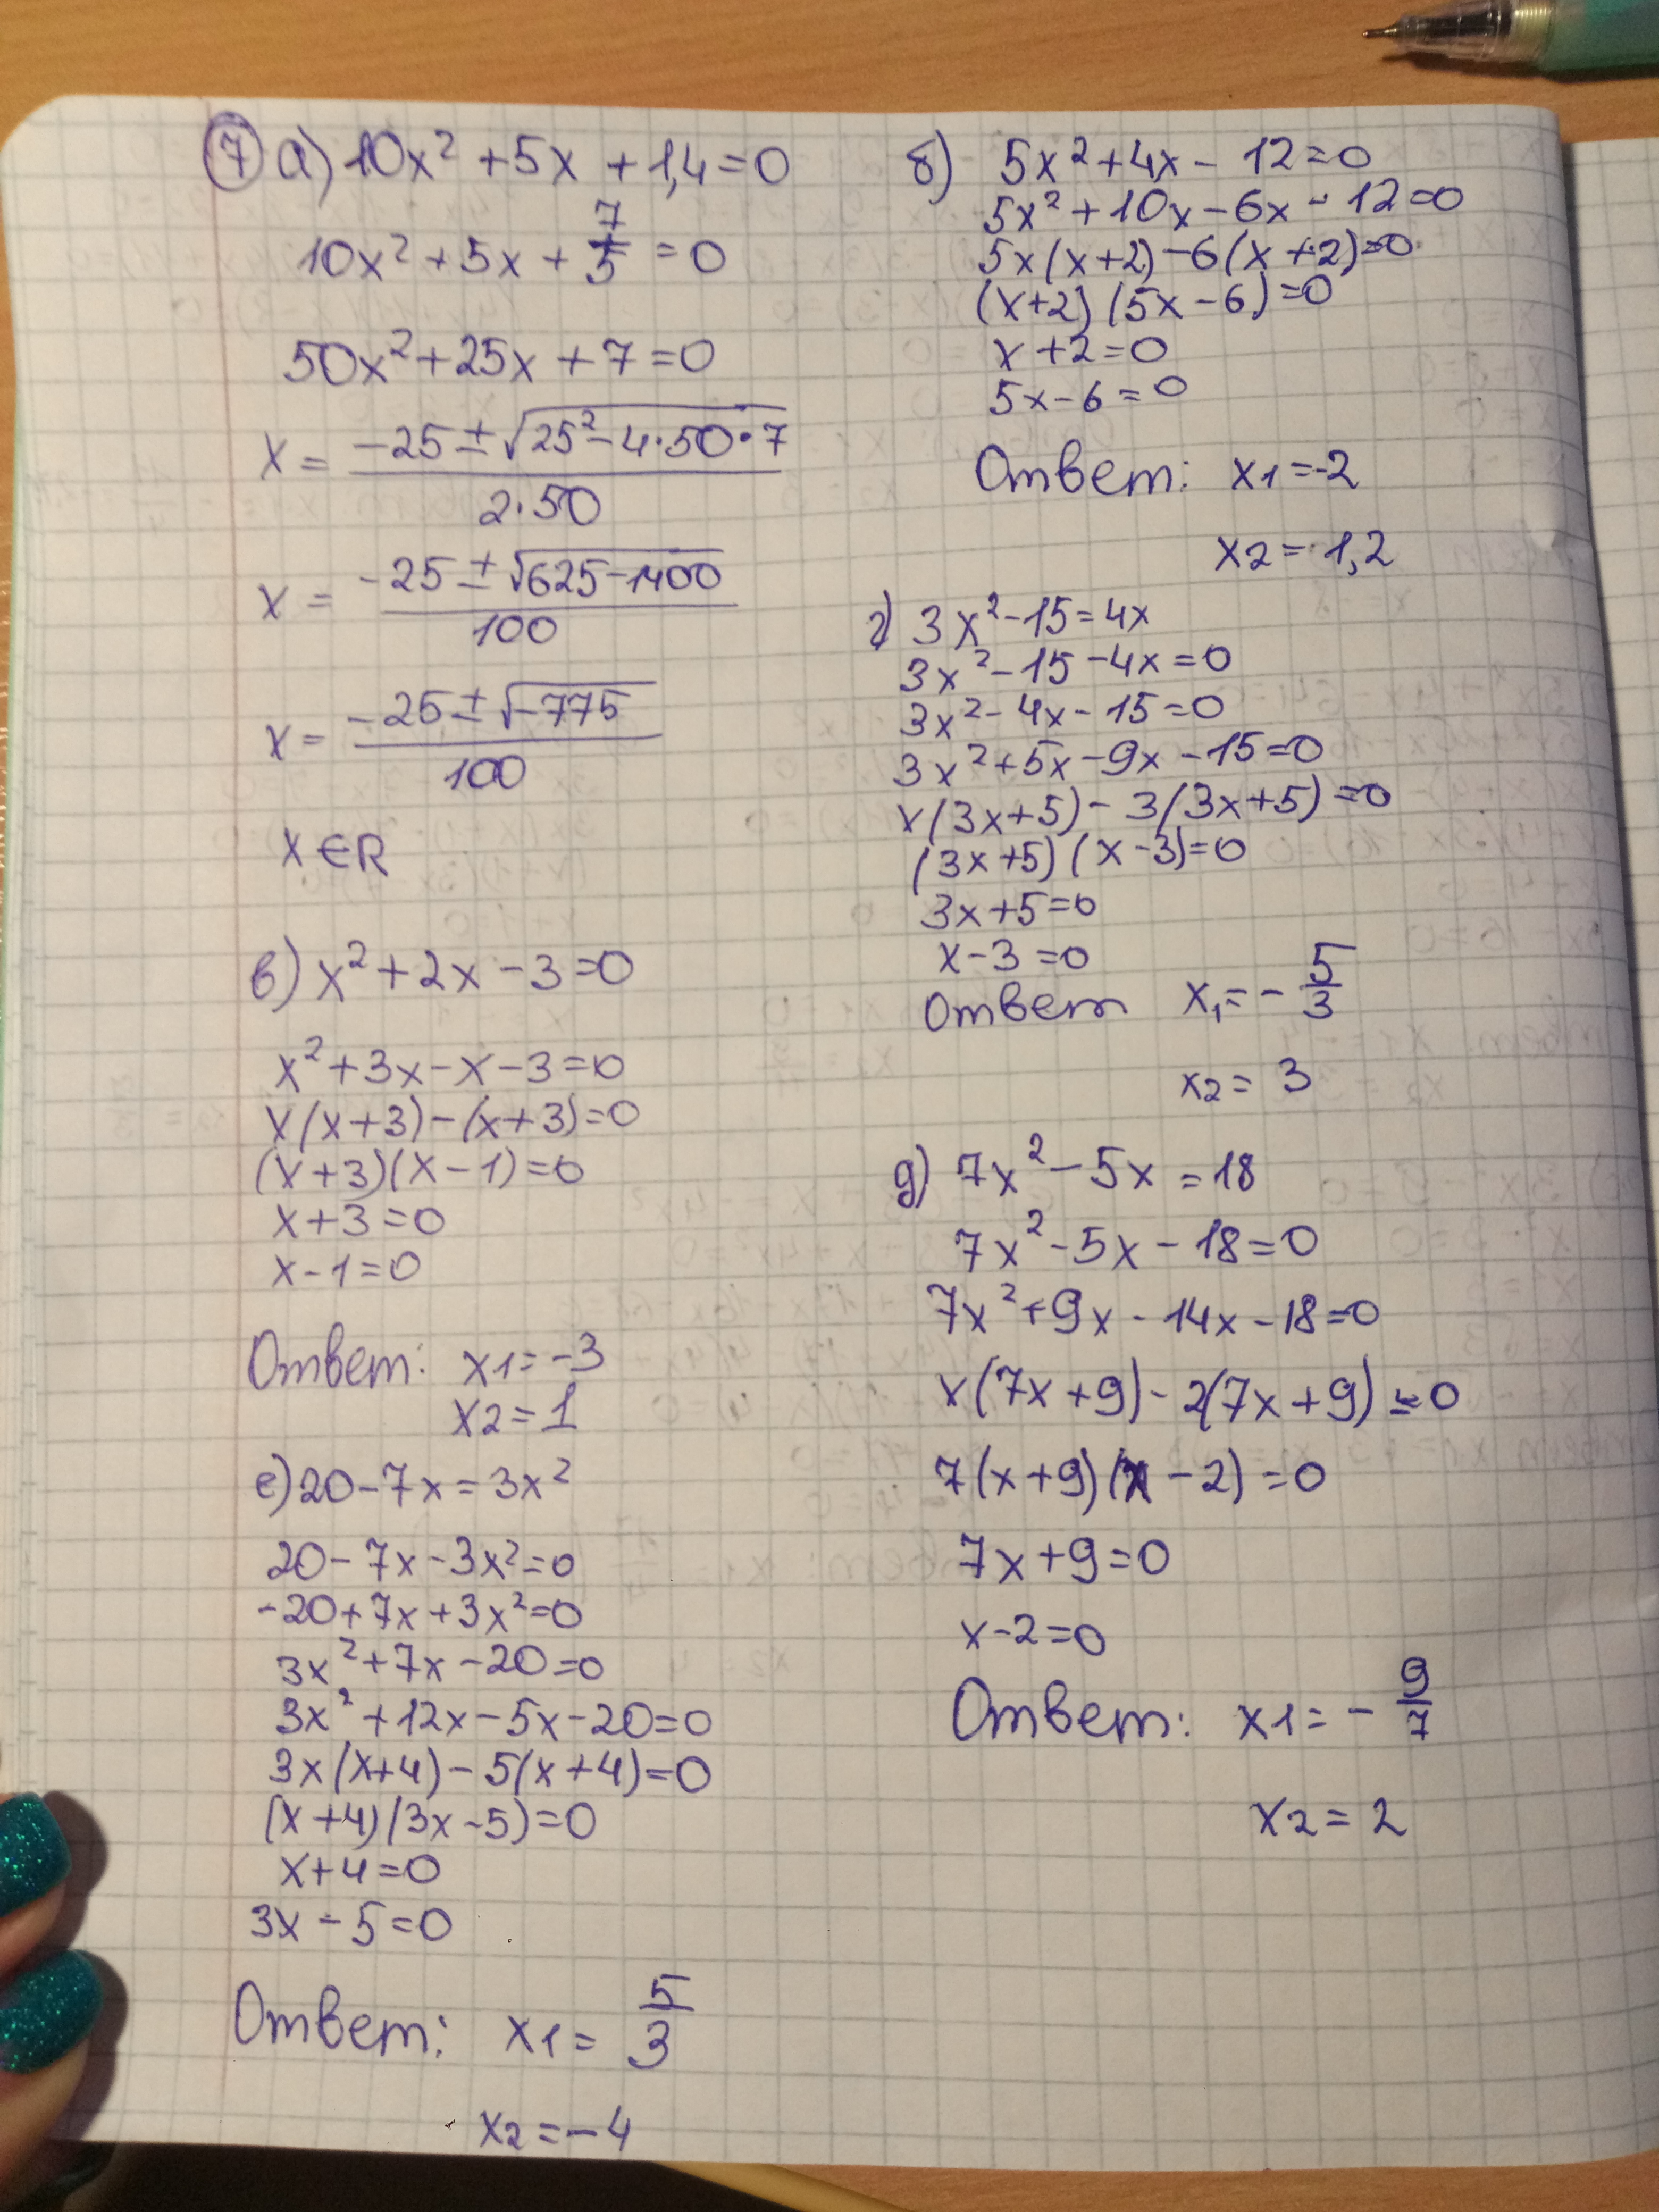 7 а) 10x² + 5x + 1,4 = 0
10x² + 5x + 7/5 = 0
50x² + 25x + 7 = 0
x = (-25 ± √(25² - 4·50·7)) / (2·50)
x = (-25 ± √(625 - 1400)) / 100
x = (-25 ± √(-775)) / 100
x ∈ R
в) x² + 2x - 3 = 0
x² + 3x - x - 3 = 0
x(x+3) - (x+3) = 0
(x+3)(x-1) = 0
x + 3 = 0
x - 1 = 0
Ответ: x1 = -3
x2 = 1
е) 20 - 7x = 3x²
20 - 7x - 3x² = 0
-20 + 7x + 3x² = 0
3x² + 7x - 20 = 0
3x² + 12x - 5x - 20 = 0
3x(x+4) - 5(x+4) = 0
(x+4)(3x-5) = 0
x + 4 = 0
3x - 5 = 0
Ответ: x1 = 5/3
x2 = -4
б) 5x² + 4x - 12 = 0
5x² + 10x - 6x - 12 = 0
5x(x+2) - 6(x+2) = 0
(x+2)(5x-6) = 0
x + 2 = 0
5x - 6 = 0
Ответ: x1 = -2
x2 = 1,2
г) 3x² - 15 = 4x
3x² - 15 - 4x = 0
3x² - 4x - 15 = 0
3x² + 5x - 9x - 15 = 0
x(3x+5) - 3(3x+5) = 0
(3x+5)(x-3) = 0
3x + 5 = 0
x - 3 = 0
Ответ x1 = -5/3
x2 = 3
д) 7x² - 5x = 18
7x² - 5x - 18 = 0
7x² + 9x - 14x - 18 = 0
x(7x+9) - 2(7x+9) = 0
7(x+9)(x-2) = 0
7x + 9 = 0
x - 2 = 0
Ответ: x1 = -9/7
x2 = 2